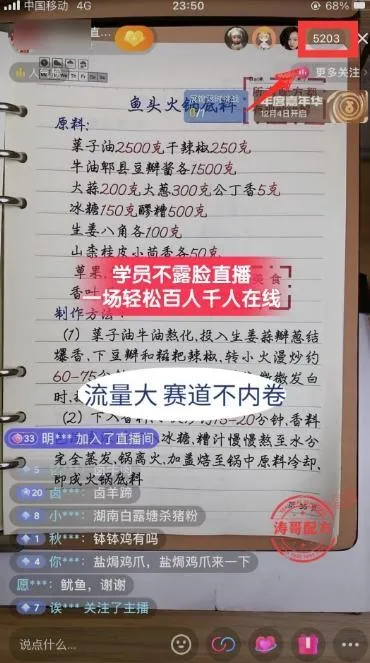 中国移动 4G
23:50
68%
直…
5203
人气榜
更多关注
年度嘉年华
12月4日开启
鱼头火锅底料
原料:
菜子油2500克干辣椒250克
牛油郫县豆瓣酱各1500克
大蒜200克大葱300克公丁香5克
冰糖150克醪糟500克
生姜八角各100克
山柰桂皮小茴香各50克
草果
香叶
美食
学员不露脸直播
一场轻松百人千人在线
制作方法:
(1) 菜子油牛油熬化,投入生姜蒜瓣葱结
爆香,下豆瓣和糍粑辣椒,转小火漫炒约
60-75分
微微发白
时,
流量大 赛道不内卷
(2) 下入香料
15-20分钟,香料
33 明*** 加入了直播间
冰糖,糟汁慢慢熬至水分
完全蒸发,锅离火,加盖焐至锅中原料冷却,
即成火锅底料
20 卤*** : 卤羊蹄
8 小*** : 湖南白露塘杀猪粉
1 秋*** : 钵钵鸡有吗
4 你*** : 盐焗鸡爪,盐焗鸡爪来一下
愿*** : 鱿鱼,谢谢
7 诶*** 关注了主播
涛哥配方
说点什么...